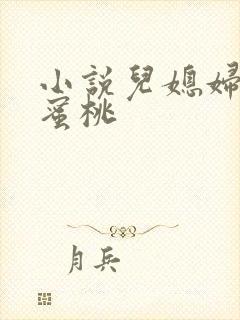 小說兒媳婦
蜜桃
月兵